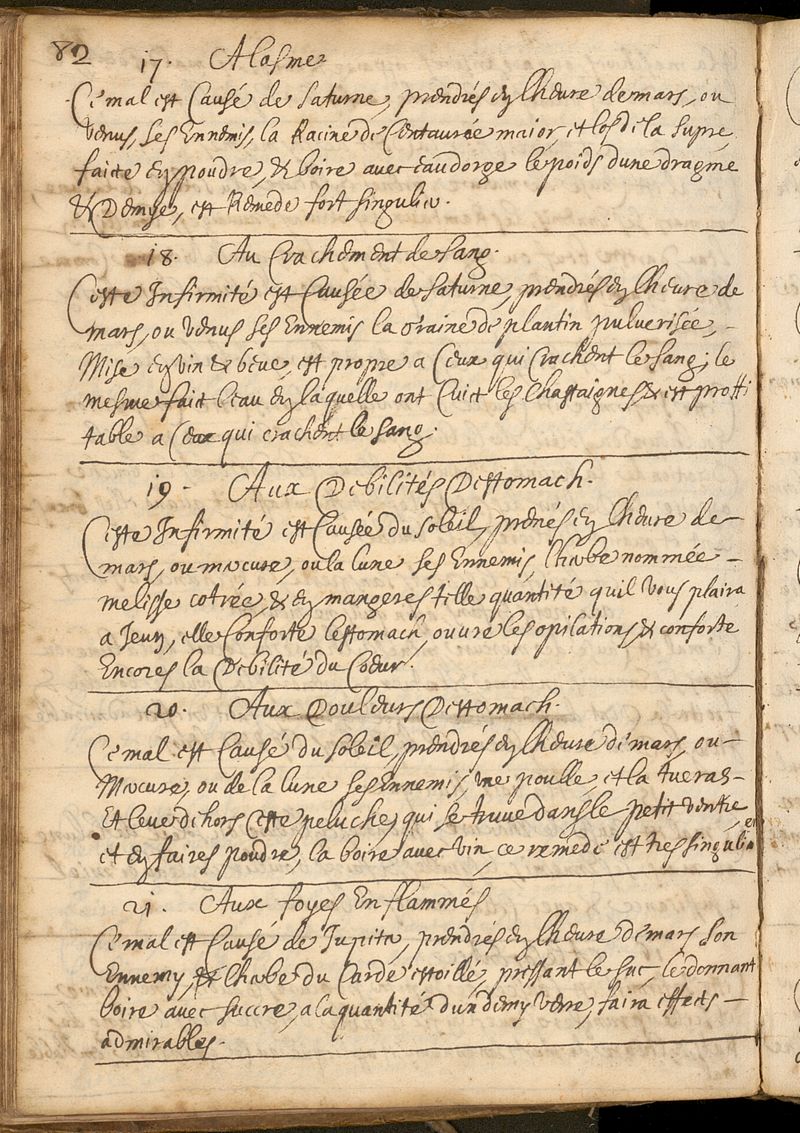 82
17. A lasme
Ce mal est Causé de saturne, prendrés ey lheure de mars, ou
venus, ses Ennemis, la Racine de Centaurée maior, et los de la supre
faicte ey poudre, & boire avec eau dorge le poids dune dragme
& Demye, est Remede fort singulier.
18. Au Crachement de sang.
Ceste Infirmité est Causée de saturne, prendrés ey lheure de
mars, ou venus ses Ennemis la Graine de plantin pulverisée,
Mise ey vin & beue, est propre a Ceux qui Crachent le sang; le
mesme faict leau ey laquelle ont Cuict les Chastaignes & est proffi
table a Ceux qui crachent le sang.
19. Aux Debilités Destomach.
Ceste Infirmité est Causée du soleil, prenés ey lheure de
mars, ou mercure, ou la lune ses Ennemis, lherbe nommée
melisse cotrée, & ey mangeres telle quantité quil vous plaira
a Jeuy, elle Conforte lestomach, ouvre les opilations, & conforte
Encores la Debilité du Coeur.
20. Aux Douleurs Destomach.
Ce mal est Causé du soleil, prendrés ey lheure de mars, ou
Mercure, ou de la lune ses Ennemis, une poulle, et la tueras
Et leve dehors ceste peluche, qui se truve dans le petit ventre,
et ey faires poudre, la boire avec vin, ce remede est tres singulier
21. Aux foyes Enflammés
Ce mal est Causé de Jupiter, prendrés ey lheure de mars son
Ennemy, lherbe du Carde estoillé, pressant le suc, le donnant
boire avec succre, a la quantité dun demy verre, faira effects
admirables.